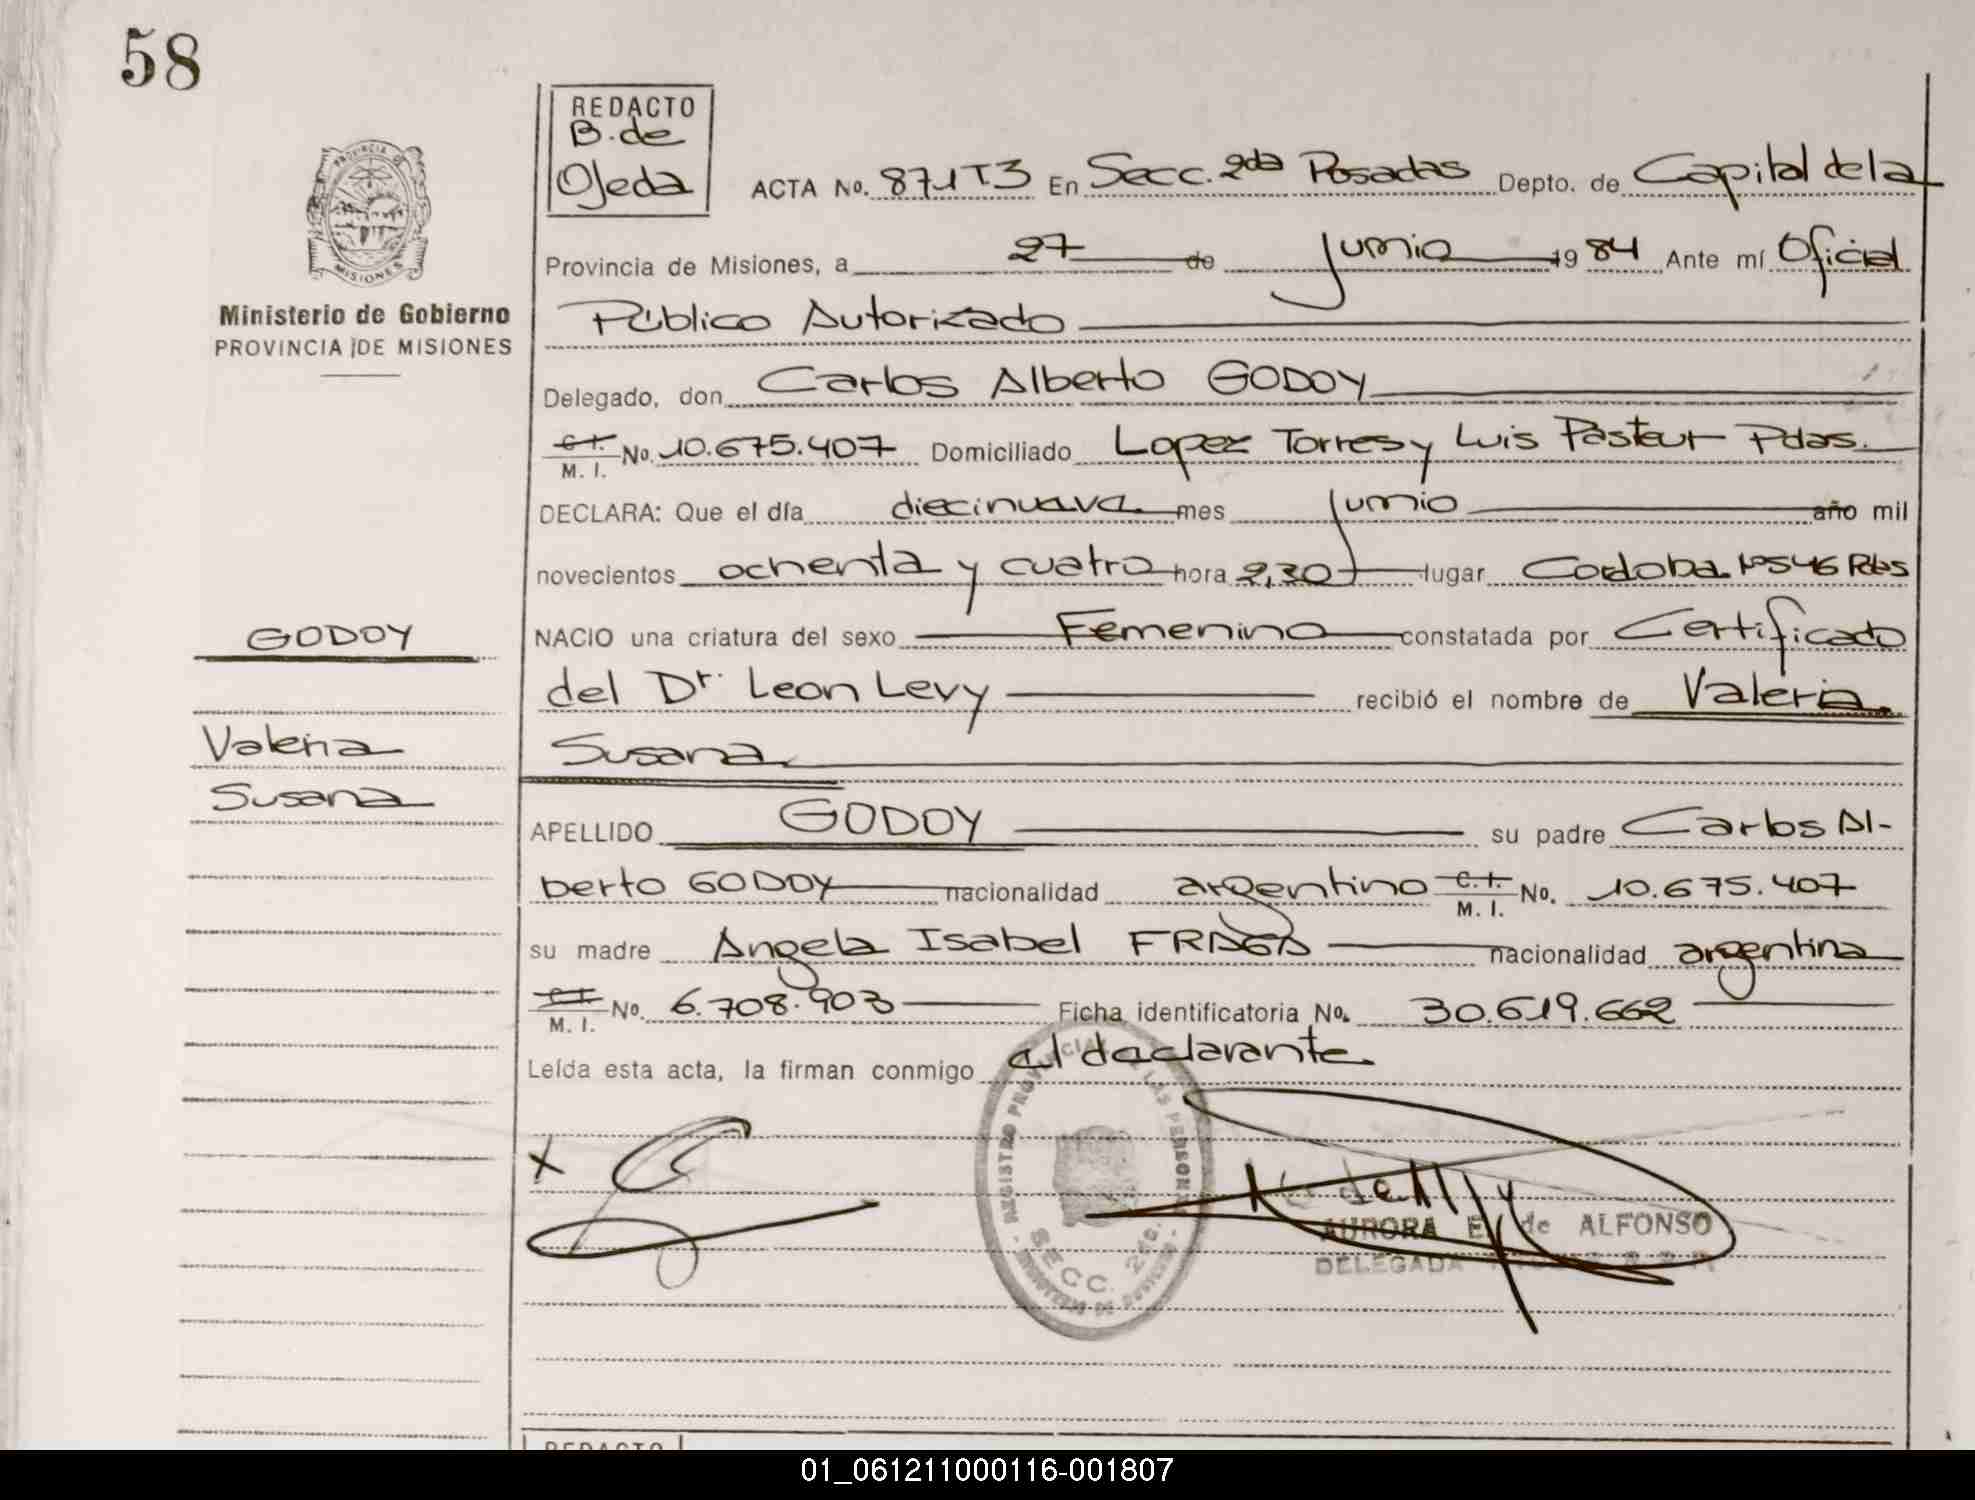 58
REDACTO
B. de
Ojeda
ACTA No. 871T3 En Secc. 2da Posadas Depto. de Capital de la
Provincia de Misiones, a 27 de Junio 1984 Ante mí Oficial
Público Autorizado
Delegado, don Carlos Alberto GODOY
C. I.
M. I. No. 10.675.407 Domiciliado Lopez Torres y Luis Pasteur Pdas.
DECLARA: Que el día diecinueve mes Junio año mil
novecientos ochenta y cuatro hora 2,30 lugar Cordoba Nº546 Pdas
NACIO una criatura del sexo Femenino constatada por Certificado
del Dr. Leon Levy recibió el nombre de Valeria
Susana
APELLIDO GODOY su padre Carlos Al-
berto GODOY nacionalidad argentino C. I. M. I. No. 10.675.407
su madre Angela Isabel FRAGA nacionalidad argentina
C. I.
M. I. No. 6.708.903 Ficha identificatoria No. 30.619.662
Leída esta acta, la firman conmigo el declarante
X
AURORA E. de ALFONSO
DELEGADA
REGISTRO PROVINCIAL DE LAS PERSONAS
SECC. 2da.
Ministerio de Gobierno
PROVINCIA DE MISIONES
PROVINCIA DE
MISIONES
GODOY
Valeria
Susana
REDACTO
01_061211000116-001807